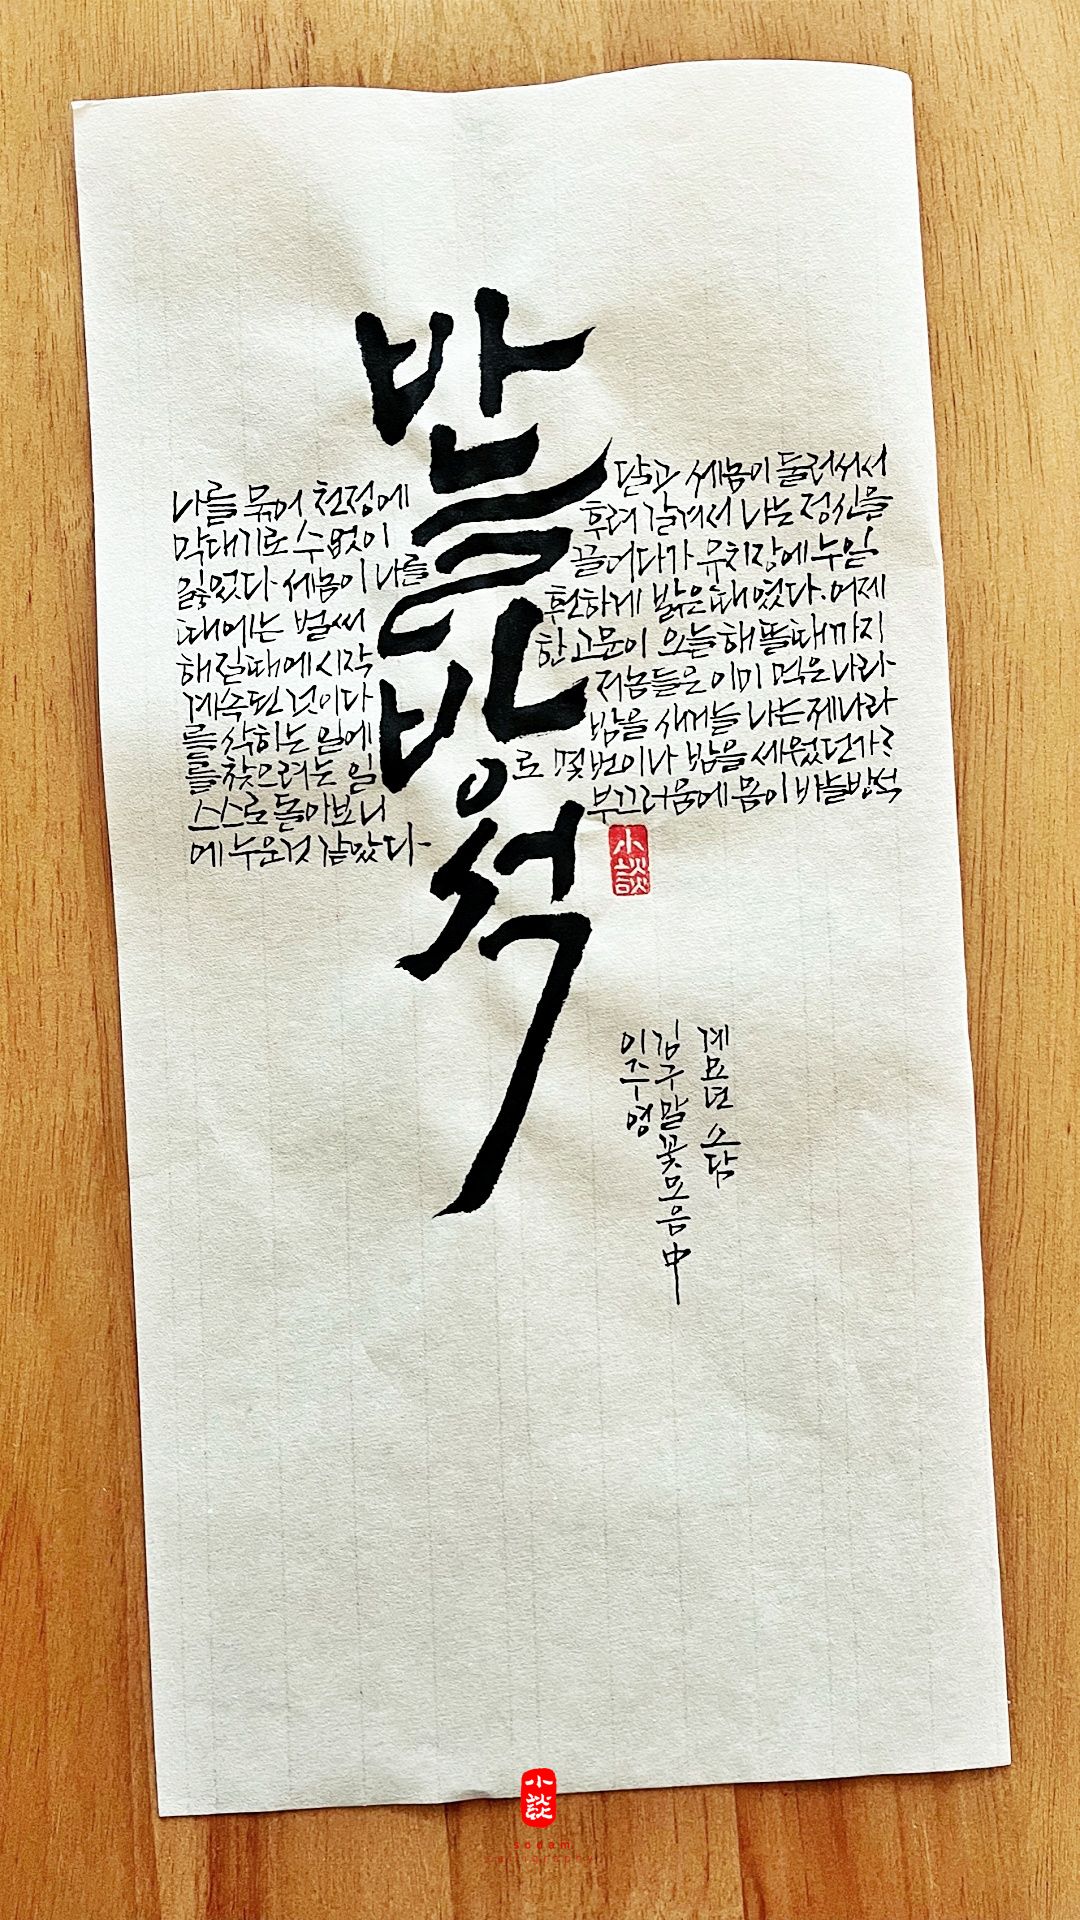 바늘방석
나를 묶어 천정에 달고 세놈이 둘러서서
막대기로 수없이 후려 갈겨서 나는 정신을
잃었다. 세놈이 나를 끌어다가 유치장에 누일
때에는 벌써 훤하게 밝은 때였다. 어제
해질때에 시작한 고문이 오늘 해뜰때까지
계속된 것이다 저놈들은 이미 먹은 나라
를 삭히는 일에 밤을 새거늘 나는 제나라
를 찾으려는 일로 몇번이나 밤을 세웠던가?
스스로 돌아보니 부끄러움에 몸이 바늘방석
에 누운것 같았다.
小談
계묘년 소담
김구말꽃모음 中
이주영
小談
sodam